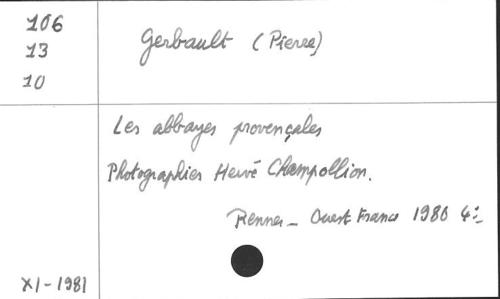 106
13
10
Gerbault (Pierre)
Les abbayes provençales
Photographies Hervé Champollion.
Rennes - Ouest France 1980 4:-
XI-1981